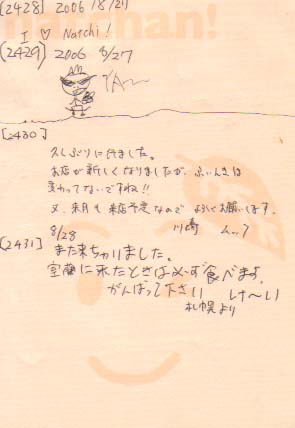 [2428] 2006 8/27
I ♡ Natchi!
[2429] 2006 8/27
[2430]
久しぶりに来ました。
お店が新しくなりましたが、ふいんきは
変わってないですね!!
又、来月も来店予定なので よろしくお願いします。
川崎
[2431] 8/28
また来ちゃいました。
室蘭に来たときは必ず食べます。
がんばって下さい
け〜い
札幌より